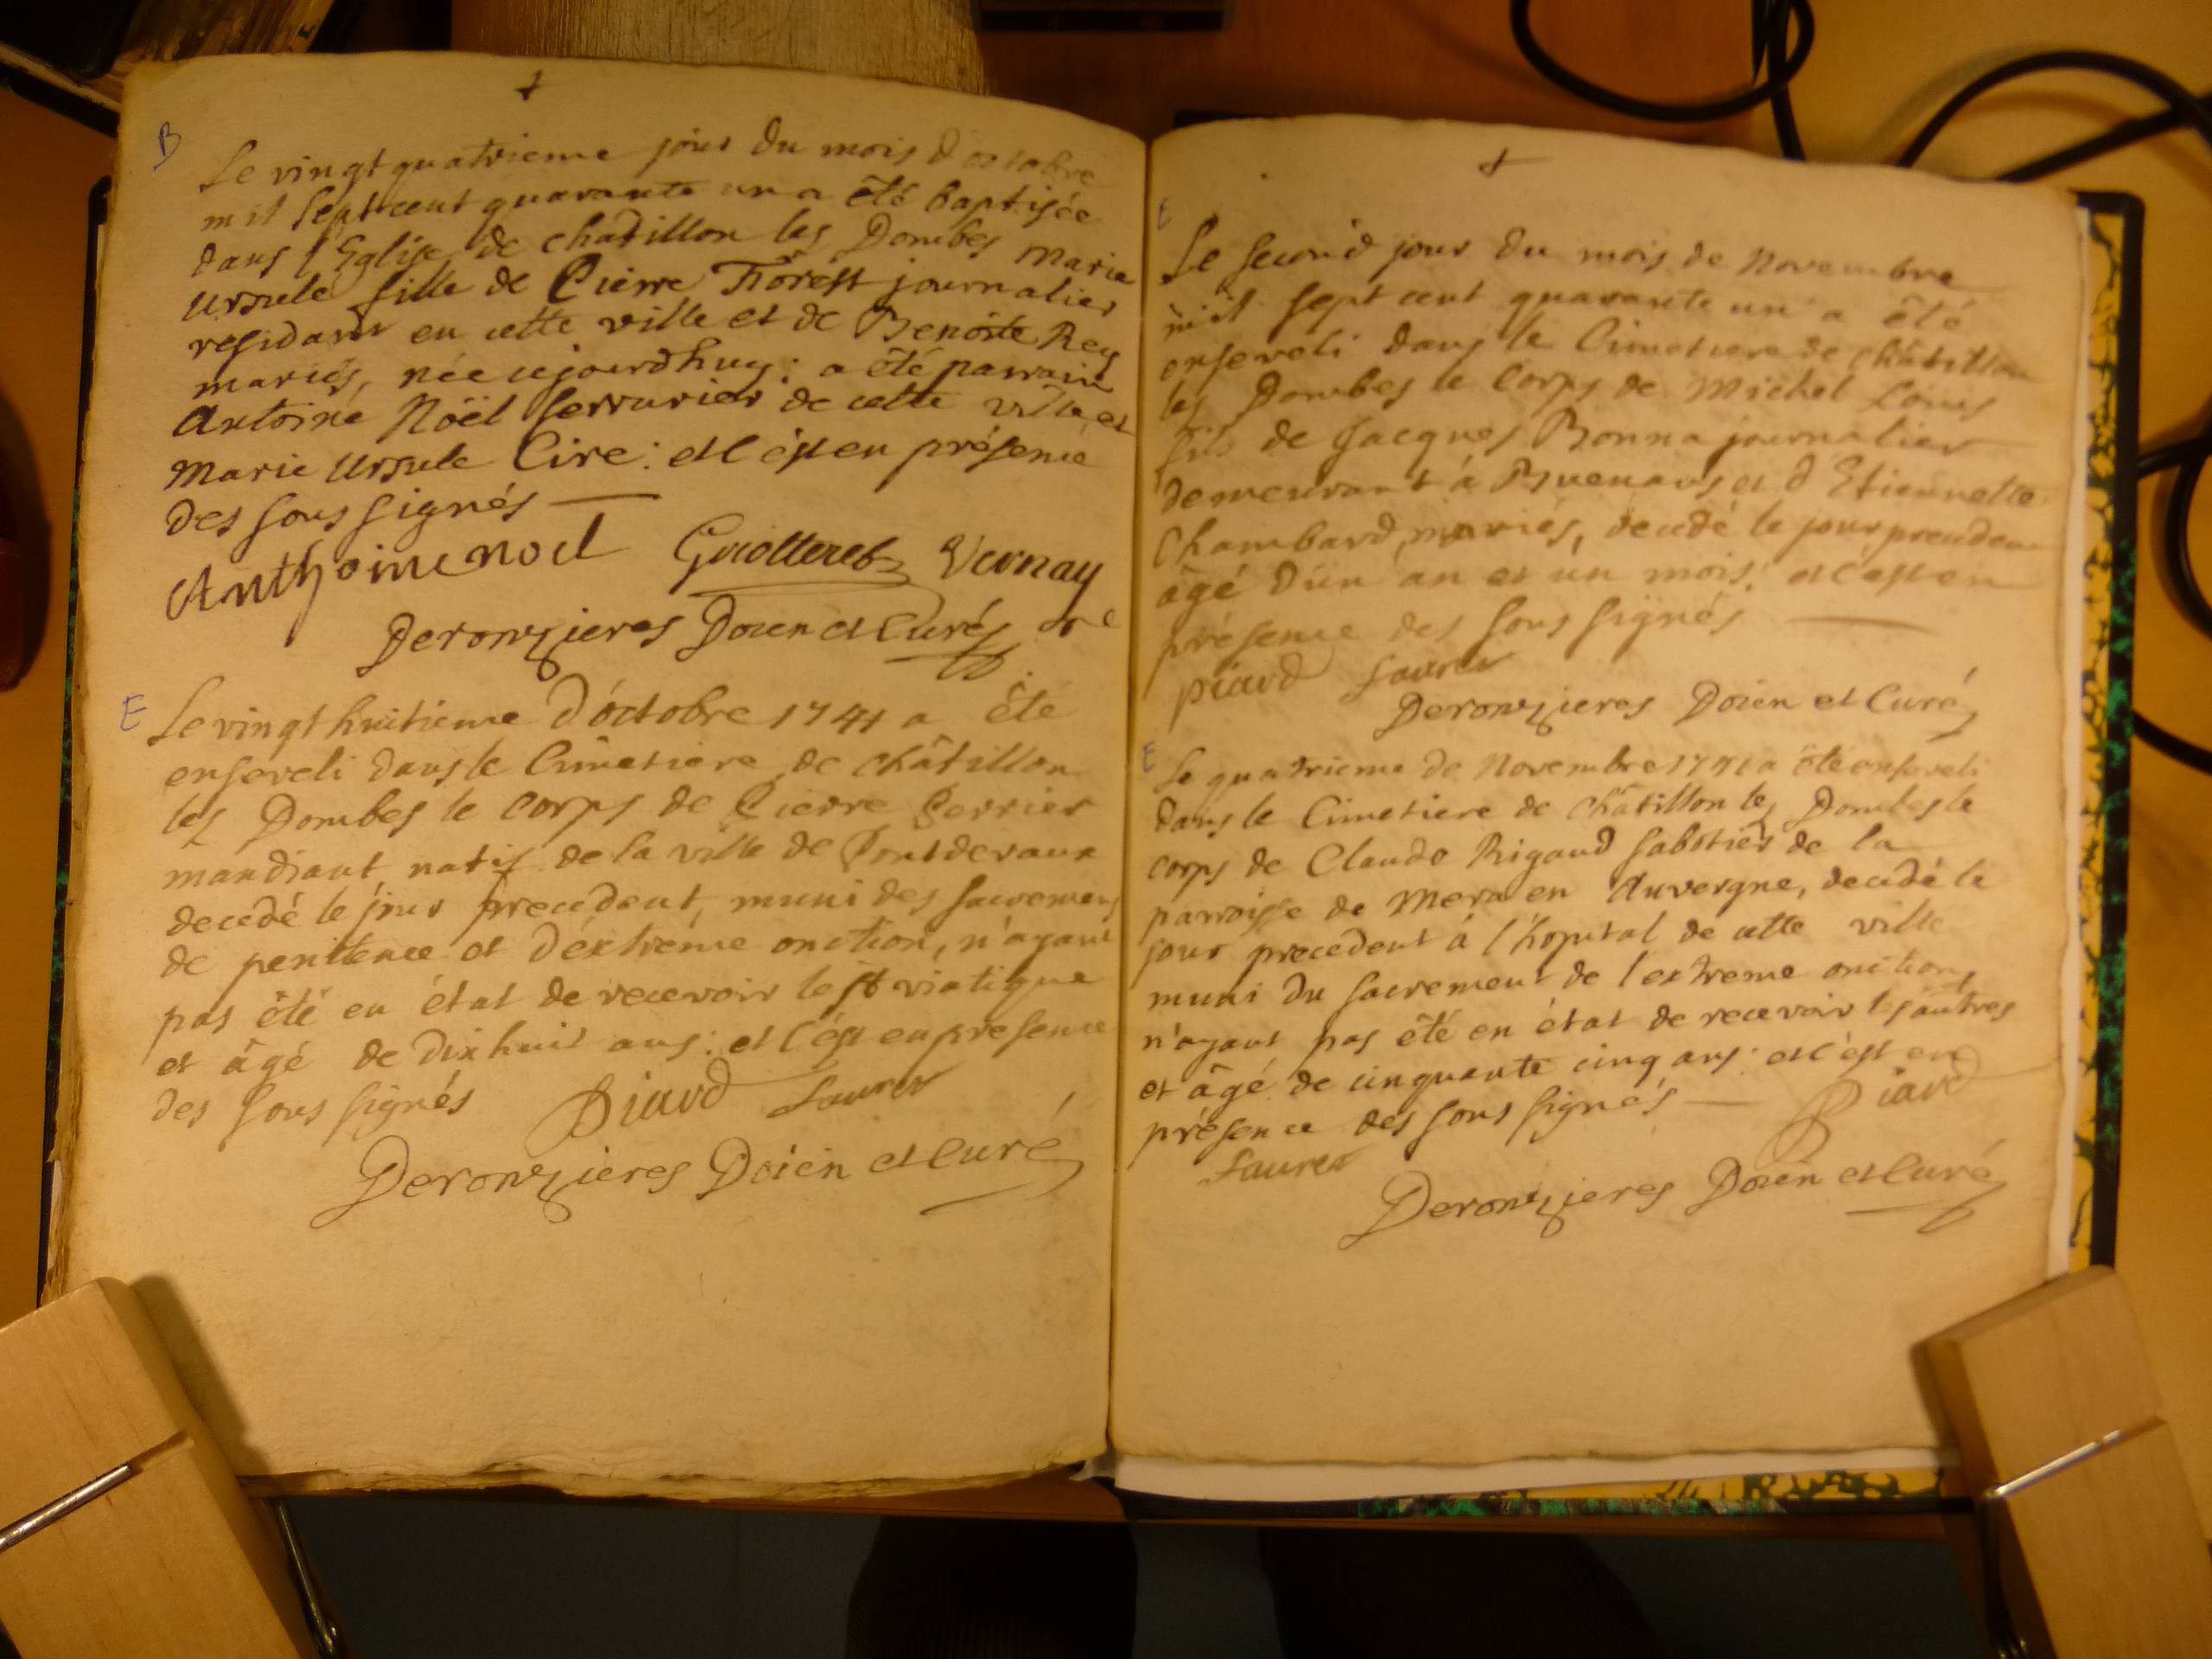 B
Le vingt quatrieme jour du mois d octobre
mil sept cent quarante un a été baptisée
dans l'Eglise de chatillon les Dombes Marie
Ursule fille de Pierre Forest journalier
residant en cette ville et de Benoite Rey
mariés, née cejourdhuy : a été parrain
Antoine Noël serrurier de cette ville et
Marie Ursule Cire : et c'est en présence
des sous signés
Anthoine noel Guotteret Vernay
Deronzieres Doien et Curé
E
Le vingt huitieme d'octobre 1741 a été
enseveli dans le Cimetiere de châtillon
les Dombes le corps de Pierre Perrier
mandiant natif de la ville de Pontdevaux
decedé le jour precedent, muni des sacremens
de penitence et d'extrême onction, n'ayant
pas été en état de recevoir le st viatique
et âgé de dixhuit ans : et c'est en presence
des sous signés Piard Laurer
Deronzieres Doien et Curé
E
Le second jour du mois de Novembre
mil sept cent quarante un a été
enseveli dans le Cimetiere de châtillon
les Dombes le corps de Michel Louis
fils de Jacques Bonna journalier
demeurant à Buenans et d Etiennette
Chambard, mariés, decedé le jour precedent
âgé d'un an et un mois : et c'est en
présence des sous signés
piard Laurer
Deronzieres Doien et Curé
E
Le quatrieme de Novembre 1741 a été enseveli
dans le Cimetiere de Châtillon les Dombes le
corps de Claude Rigaud sabotier de la
parroisse de Mera en Auvergne, decedé le
jour precedent à l'hopital de cette ville
muni du sacrement de l'extreme onction,
n'ayant pas été en état de recevoir les autres
et âgé de cinquante cinq ans : et c'est en
présence des sous signés Piard
Laurer
Deronzieres Doien et Curé